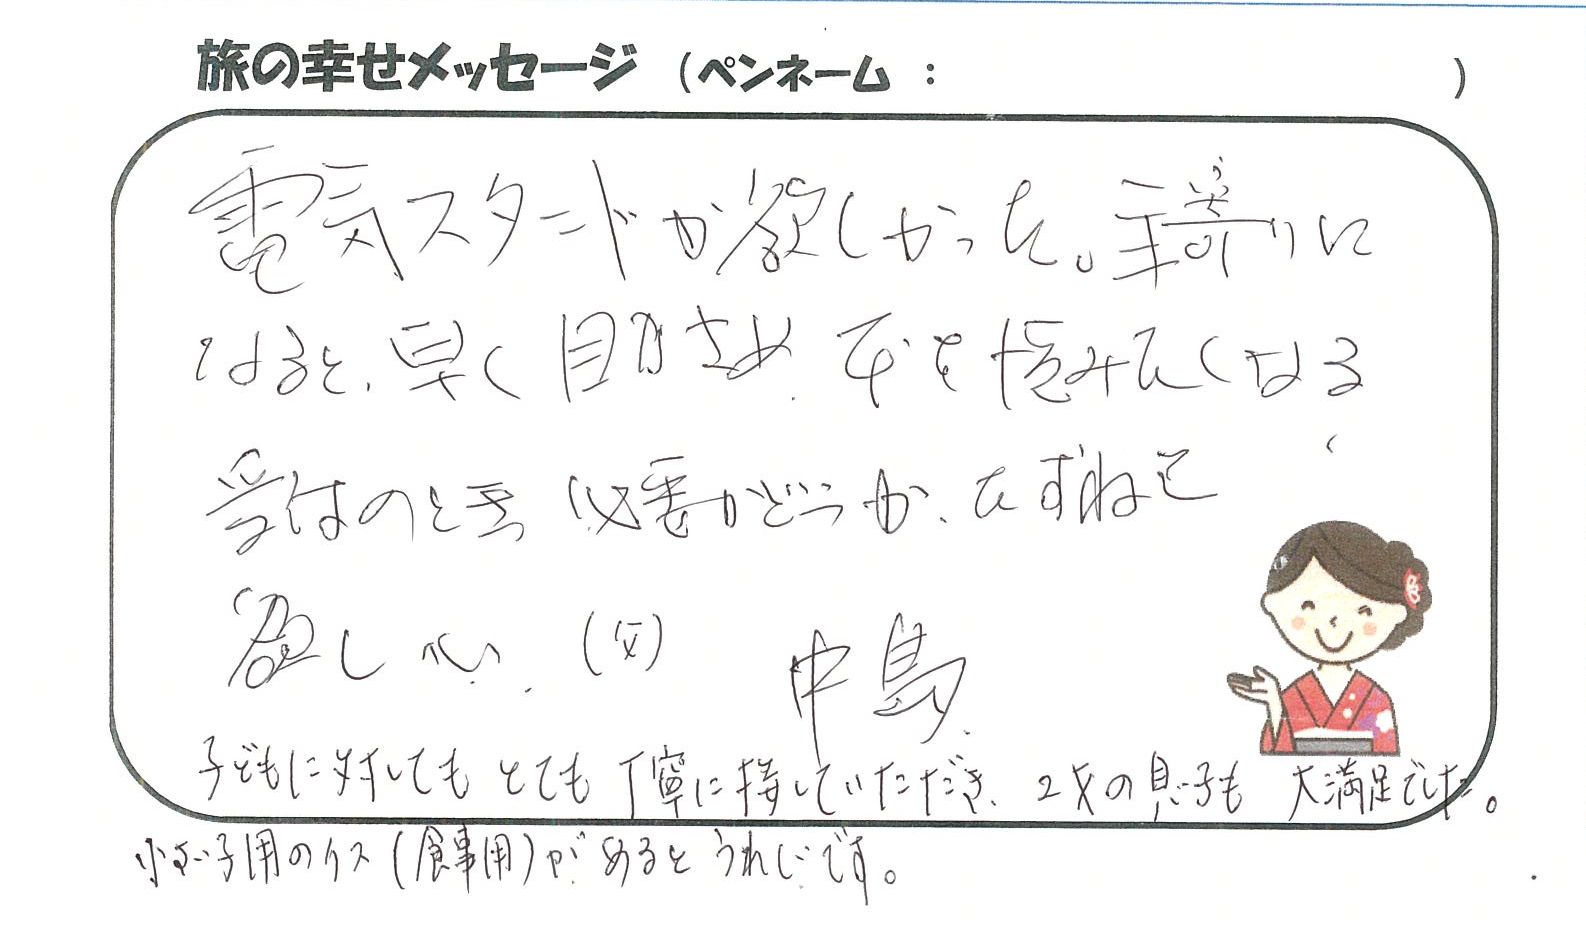 旅の幸せメッセージ (ペンネーム : )
電気スタンドが欲しかった。年寄りに
なると、早く目がさめ、本を読みたくなる
受付のとき 必要かどうか、たずねて
欲しい。(父) 中島
子どもに対してもとても丁寧に接していただき、2才の息子も 大満足でした。
小さい子用のイス(食事用)があるとうれしいです。